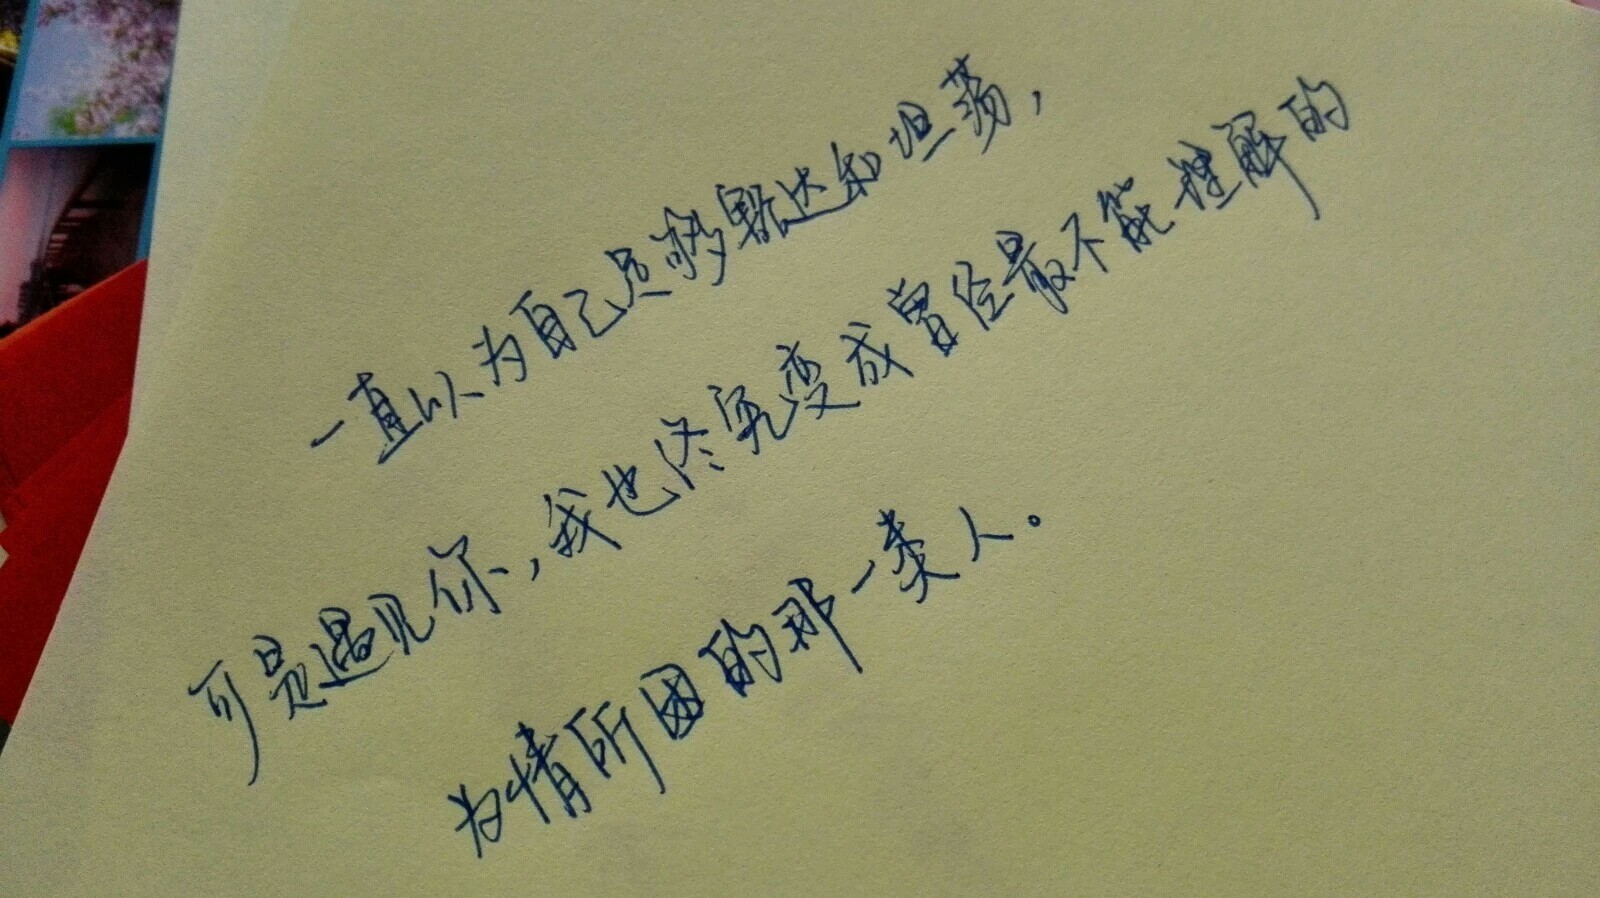 一直以为自己足够豁达和坦荡，
可是遇见你，我也终究变成曾经最不能理解的
为情所困的那一类人。